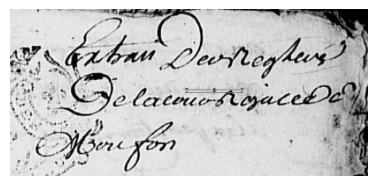 Extrait Des Registres
De la cour Royalle de
Moufon